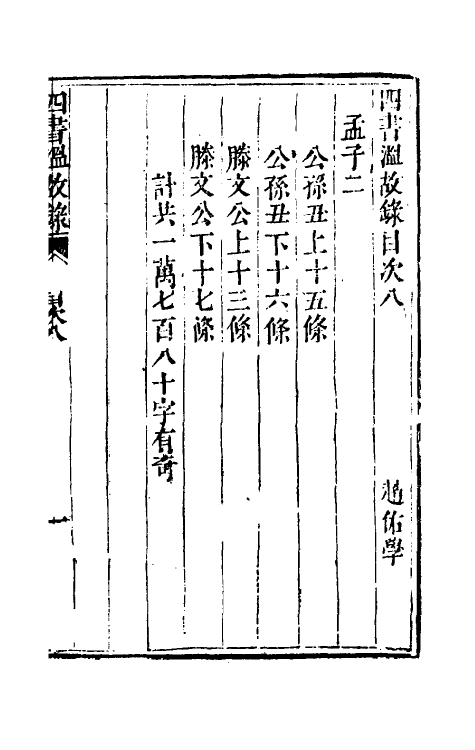 四書溫故錄目次八
趙佑學
孟子二
公孫丑上十五條
公孫丑下十六條
滕文公上十三條
滕文公下十七條
計共一萬七百八十字有奇
四書溫故錄